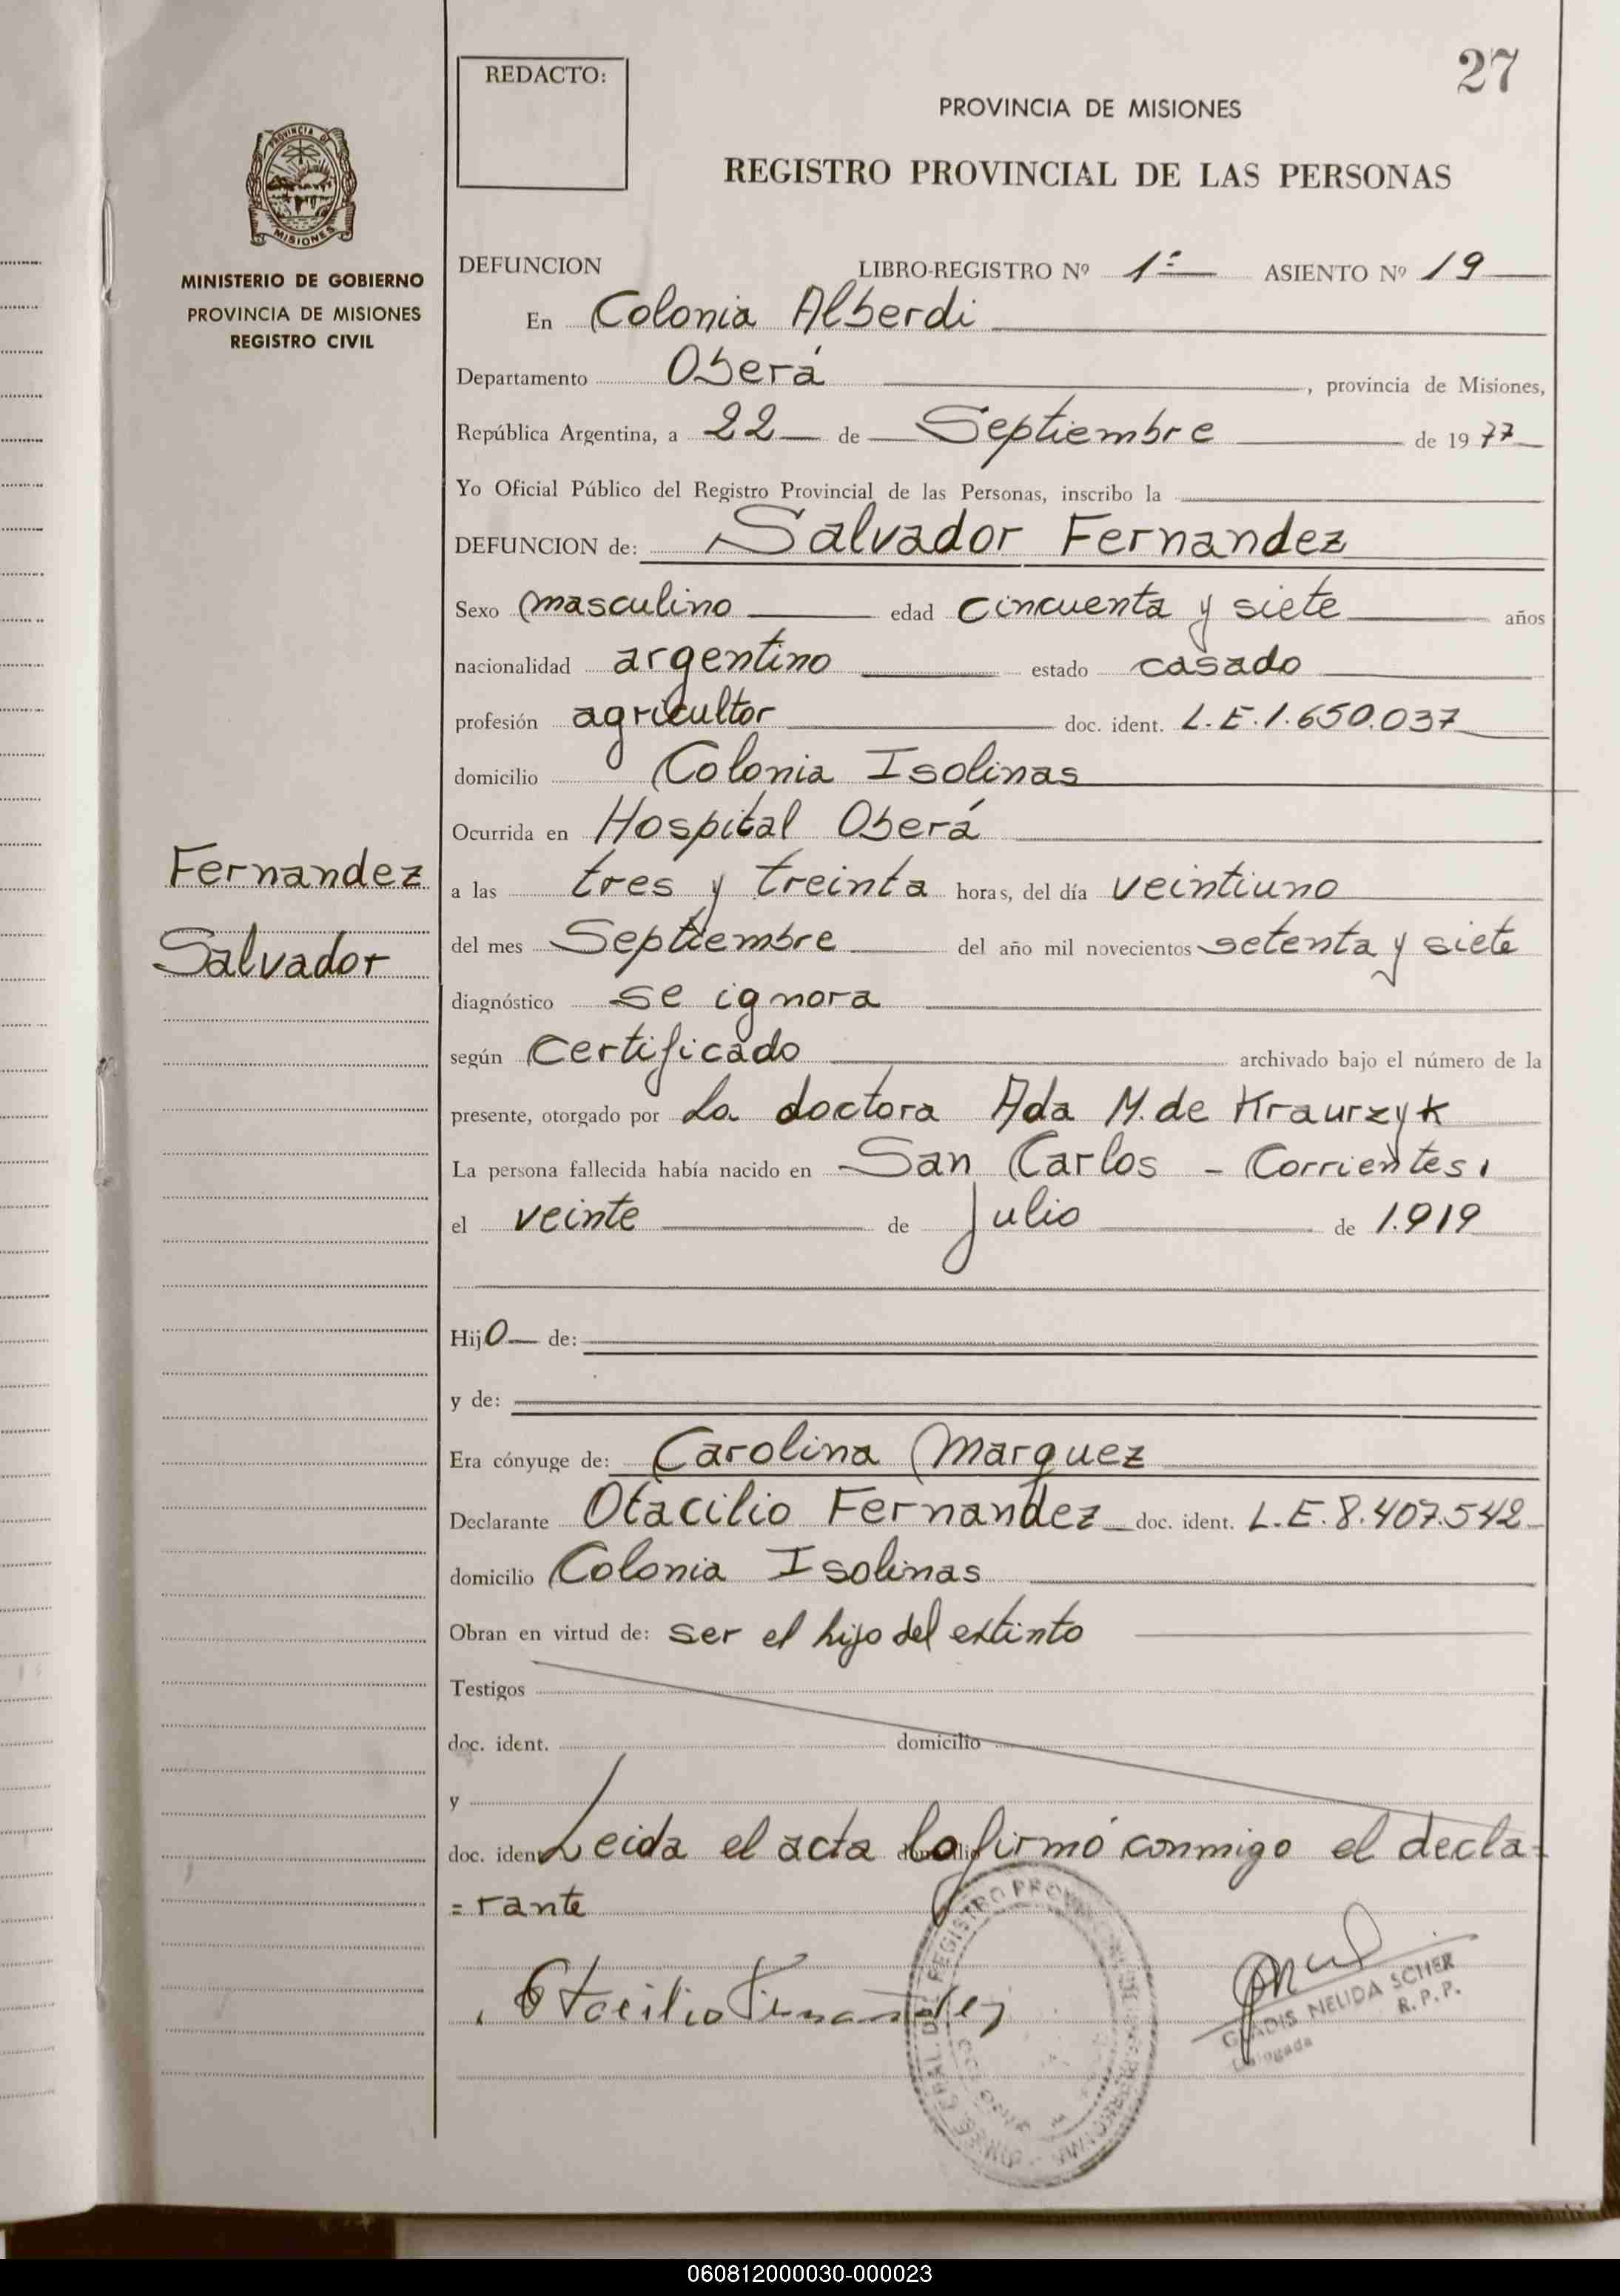 27
REDACTO:
PROVINCIA DE MISIONES
REGISTRO PROVINCIAL DE LAS PERSONAS
PROVINCIA DE
MISIONES
MINISTERIO DE GOBIERNO
PROVINCIA DE MISIONES
REGISTRO CIVIL
DEFUNCION LIBRO-REGISTRO Nº 1º ASIENTO Nº 19
En Colonia Alberdi
Departamento Oberá, provincia de Misiones,
República Argentina, a 22 de Septiembre de 1977
Yo Oficial Público del Registro Provincial de las Personas, inscribo la
DEFUNCION de: Salvador Fernandez
Sexo masculino edad cincuenta y siete años
nacionalidad argentino estado casado
profesión agricultor doc. ident. L.E.1.650.037
domicilio Colonia Isolinas
Ocurrida en Hospital Oberá
Fernandez
Salvador
a las tres y treinta horas, del día veintiuno
del mes Septiembre del año mil novecientos setenta y siete
diagnóstico se ignora
según certificado archivado bajo el número de la
presente, otorgado por La doctora Ada M. de Kraurzyk
La persona fallecida había nacido en San Carlos - Corrientes,
el veinte de Julio de 1.919
Hijo de:
y de:
Era cónyuge de: Carolina Marquez
Declarante Otacilio Fernandez doc. ident. L.E.8.407.542
domicilio Colonia Isolinas
Obran en virtud de: ser el hijo del extinto
Testigos
doc. ident. domicilio
y
doc. ident Leida el acta la firmó conmigo el decla=
=rante
Otacilio Fernandez
GLADIS NELIDA SCHER
R.P.P.
Delegada
060812000030-000023